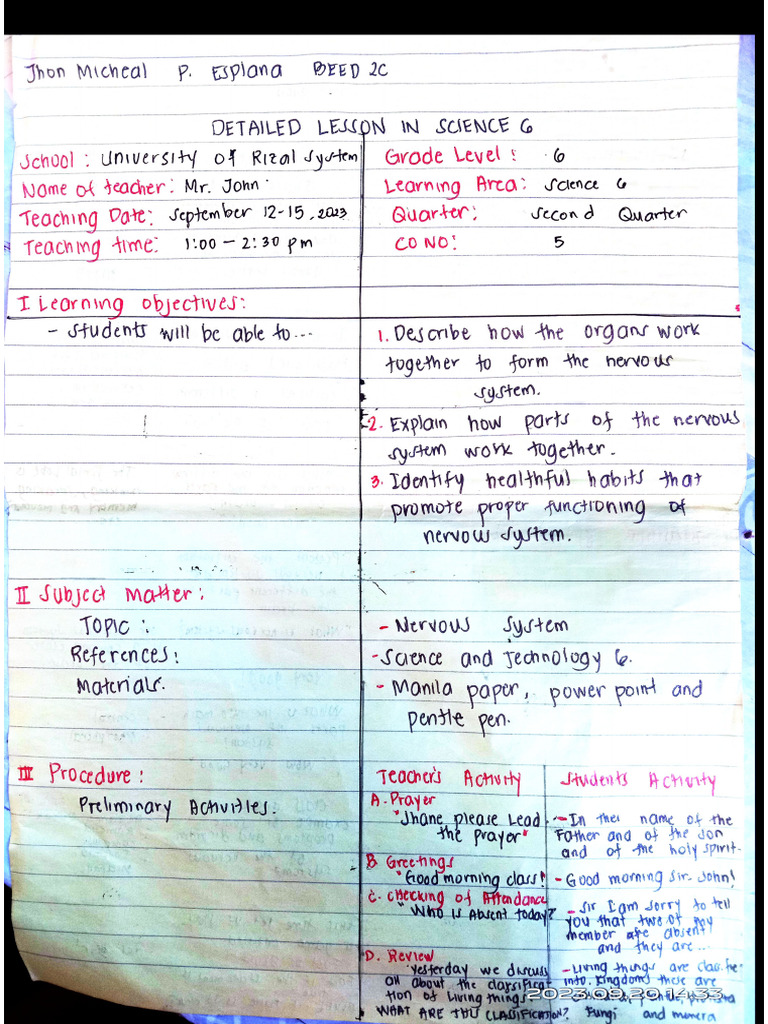 Jhon Micheal P. Esplana BEED 2C
DETAILED LESSON IN SCIENCE 6
School: University of Rizal System
Grade Level: 6
Name of teacher: Mr. John
Learning Area: Science 6
Teaching Date: September 12-15, 2023
Quarter: Second Quarter
Teaching time: 1:00 - 2:30 pm
CO NO: 5
I Learning objectives:
- Students will be able to...
1. Describe how the organs work
together to form the nervous
system.
2. Explain how parts of the nervous
system work together.
3. Identify healthful habits that
promote proper functioning of
nervous system.
II Subject Matter:
Topic: - Nervous System
References: - Science and Technology 6.
Materials. - Manila paper, power point and
pentle pen.
III Procedure:
Preliminary Activities.
Teacher's Activity
A. Prayer
"Jhane please Lead
the prayer"
B. Greetings
"Good morning class!
C. Checking of Attendance
"Who is Absent today?
D. Review
"Yesterday we discuss
all about the classificat
tion of Living things
WHAT ARE THIS CLASSIFICATION?
Students Activity
- In the name of the
Father and of the son
and of the holy spirit.
- Good morning sir John!
- Sir I am sorry to tell
you that two of my
member are absent
and they are...
- Living things are classifie
into kingdoms these are
Fungi and
2023.09.20 14:33